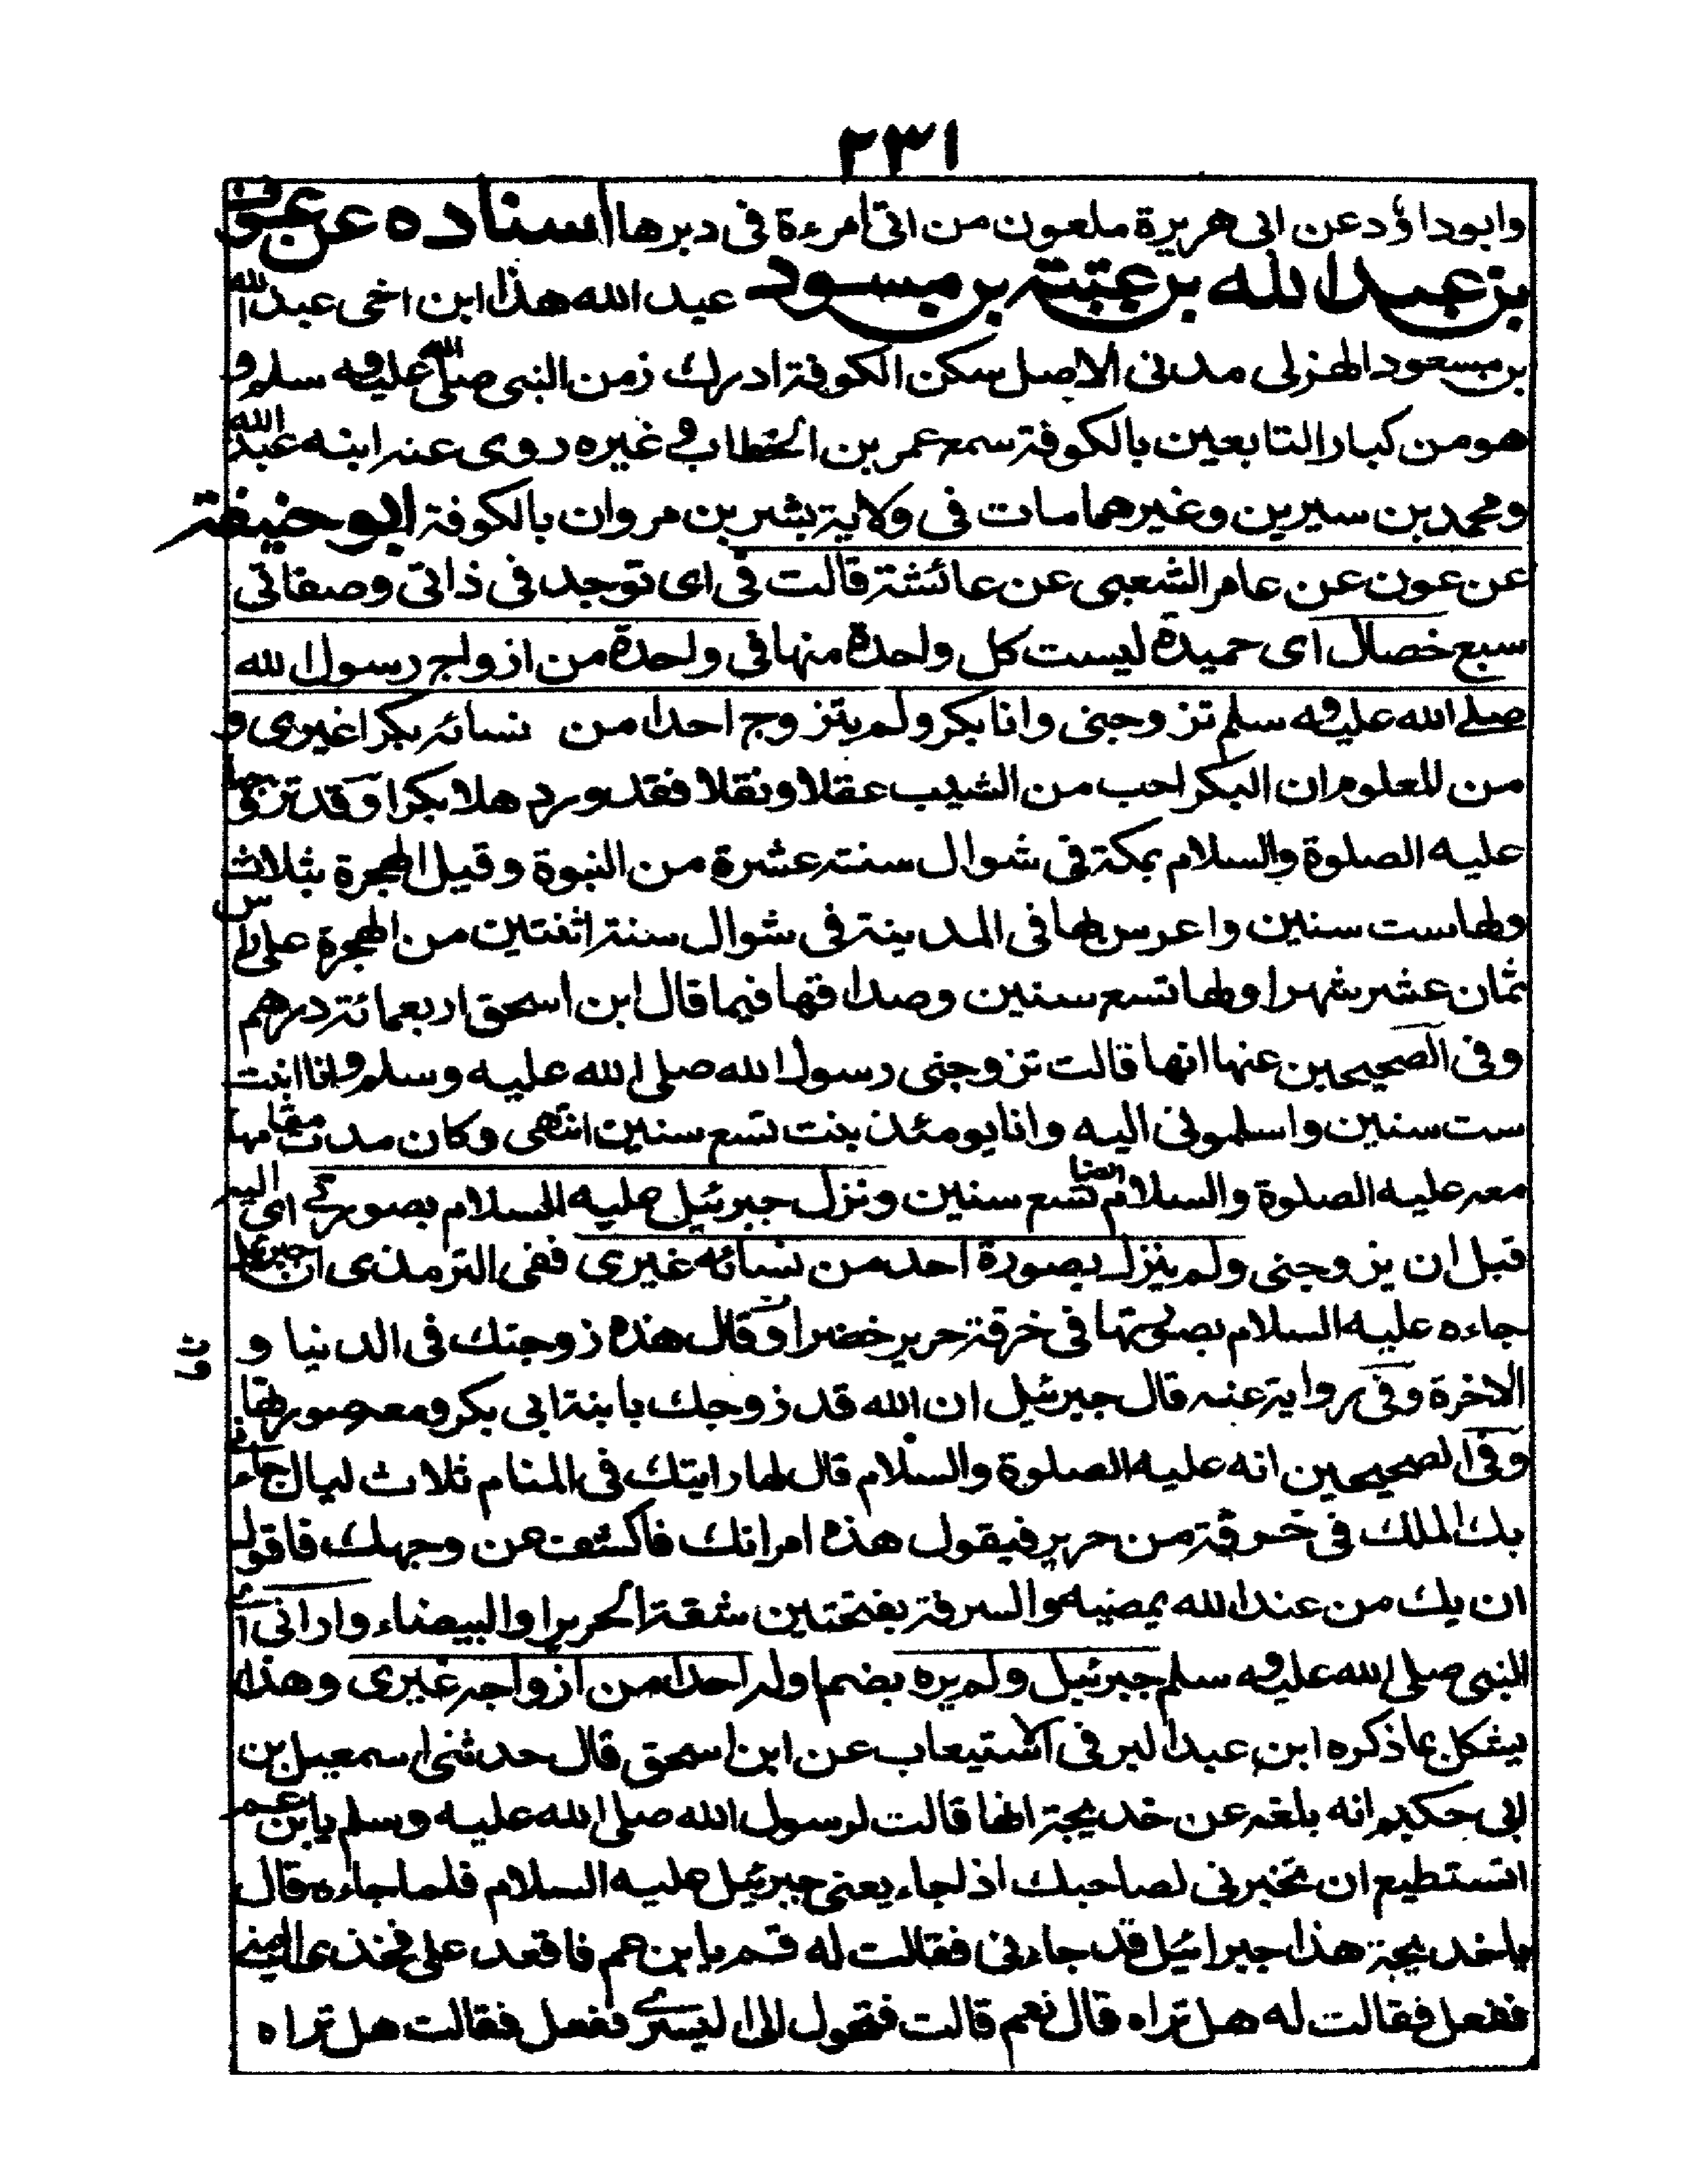 ٢٣١
وابوداؤد عن ابی هریرة ملعون من اتی امرءة فی دبرها اسناده عن عون
بن عبد الله بن عتبة بن مسود عبد الله هذا ابن اخی عبد الله
بن مسعود الهزلی مدنی الاصل سکن الکوفة ادرك زمن النبی صلی الله علیه وسلم و
هو من کبار التابعین بالکوفة سمع عمر بن الخطاب و غیره روی عنه ابنه عبد الله
ومحمد بن سیرین وغیرهما مات فی ولایة بشر بن مروان بالکوفة ابو حنیفة
عن عون عن عامر الشعبی عن عائشة قالت فی ای توجد فی ذاتی وصفاتی
سبع خصال ای حمیدة لیست کل واحدة منها فی واحدة من ازواج رسول الله
صلی الله علیه وسلم تزوجنی وانا بکر ولم یتزوج احدا من نسائه بکرا غیری و
من المعلوم ان البکر احب من الثیب عقلا ونقلا فقد ورد هلا بکرا وقد تزوجها
علیه الصلوة والسلام بمکة فی شوال سنة عشرة من النبوة وقیل الهجرة بثلاث
ولها ست سنین واعرس بها فی المدینة فی شوال سنة اثنتین من الهجرة علی راس
ثمان عشر شهرا ولها تسع سنین وصداقها فیما قال ابن اسحق اربعمائة درهم
وفی الصحیحین عنها انها قالت تزوجنی رسول الله صلی الله علیه وسلم وانا ابنت
ست سنین واسلمونی الیه وانا یومئذ بنت تسع سنین انتهی وکان مدة مقامها
معه علیه الصلوة والسلام ایضا تسع سنین ونزل جبرئیل علیه السلام بصورتی ای الیه
قبل ان یزوجنی ولم ینزل بصورة احد من نسائه غیری ففی الترمذی ان جبرئیل
جاءه علیه السلام بصورتها فی خرقة حریر خضرا وقال هذه زوجتك فی الدنیا و
الاخرة وفی روایة عنه قال جبرئیل ان الله قد زوجك بابنة ابی بکر ومعه صورتها
وفی الصحیحین انه علیه الصلوة والسلام قال لها رایتك فی المنام ثلاث لیال جاءنی
بك الملك فی خرقة من حریر فیقول هذه امراتك فاکشف عن وجهك فاقول
ان یك من عند الله یمضیه والسرقة بفتحتین شقة الحریر او البیضاء وارانی ای
النبی صلی الله علیه وسلم جبرئیل ولم یره بضم اوله احدا من ازواجه غیری وهذا
یشکل بماذکره ابن عبد البر فی الاستیعاب عن ابن اسحق قال حدثنی اسمعیل بن
ابی حکیم انه بلغه عن خدیجة انها قالت لرسول الله صلی الله علیه وسلم یا ابن عم
اتستطیع ان تخبرنی لصاحبك اذ اجاء یعنی جبرئیل علیه السلام فلما جاءه قال
یا خدیجة هذا جبرائیل قد جاءنی فقالت له قم یا بن عم فاقعد علی فخذی الیمنی
ففعل فقالت له هل تراه قال نعم قالت فتحول الی الیسری ففعل فقالت هل تراه